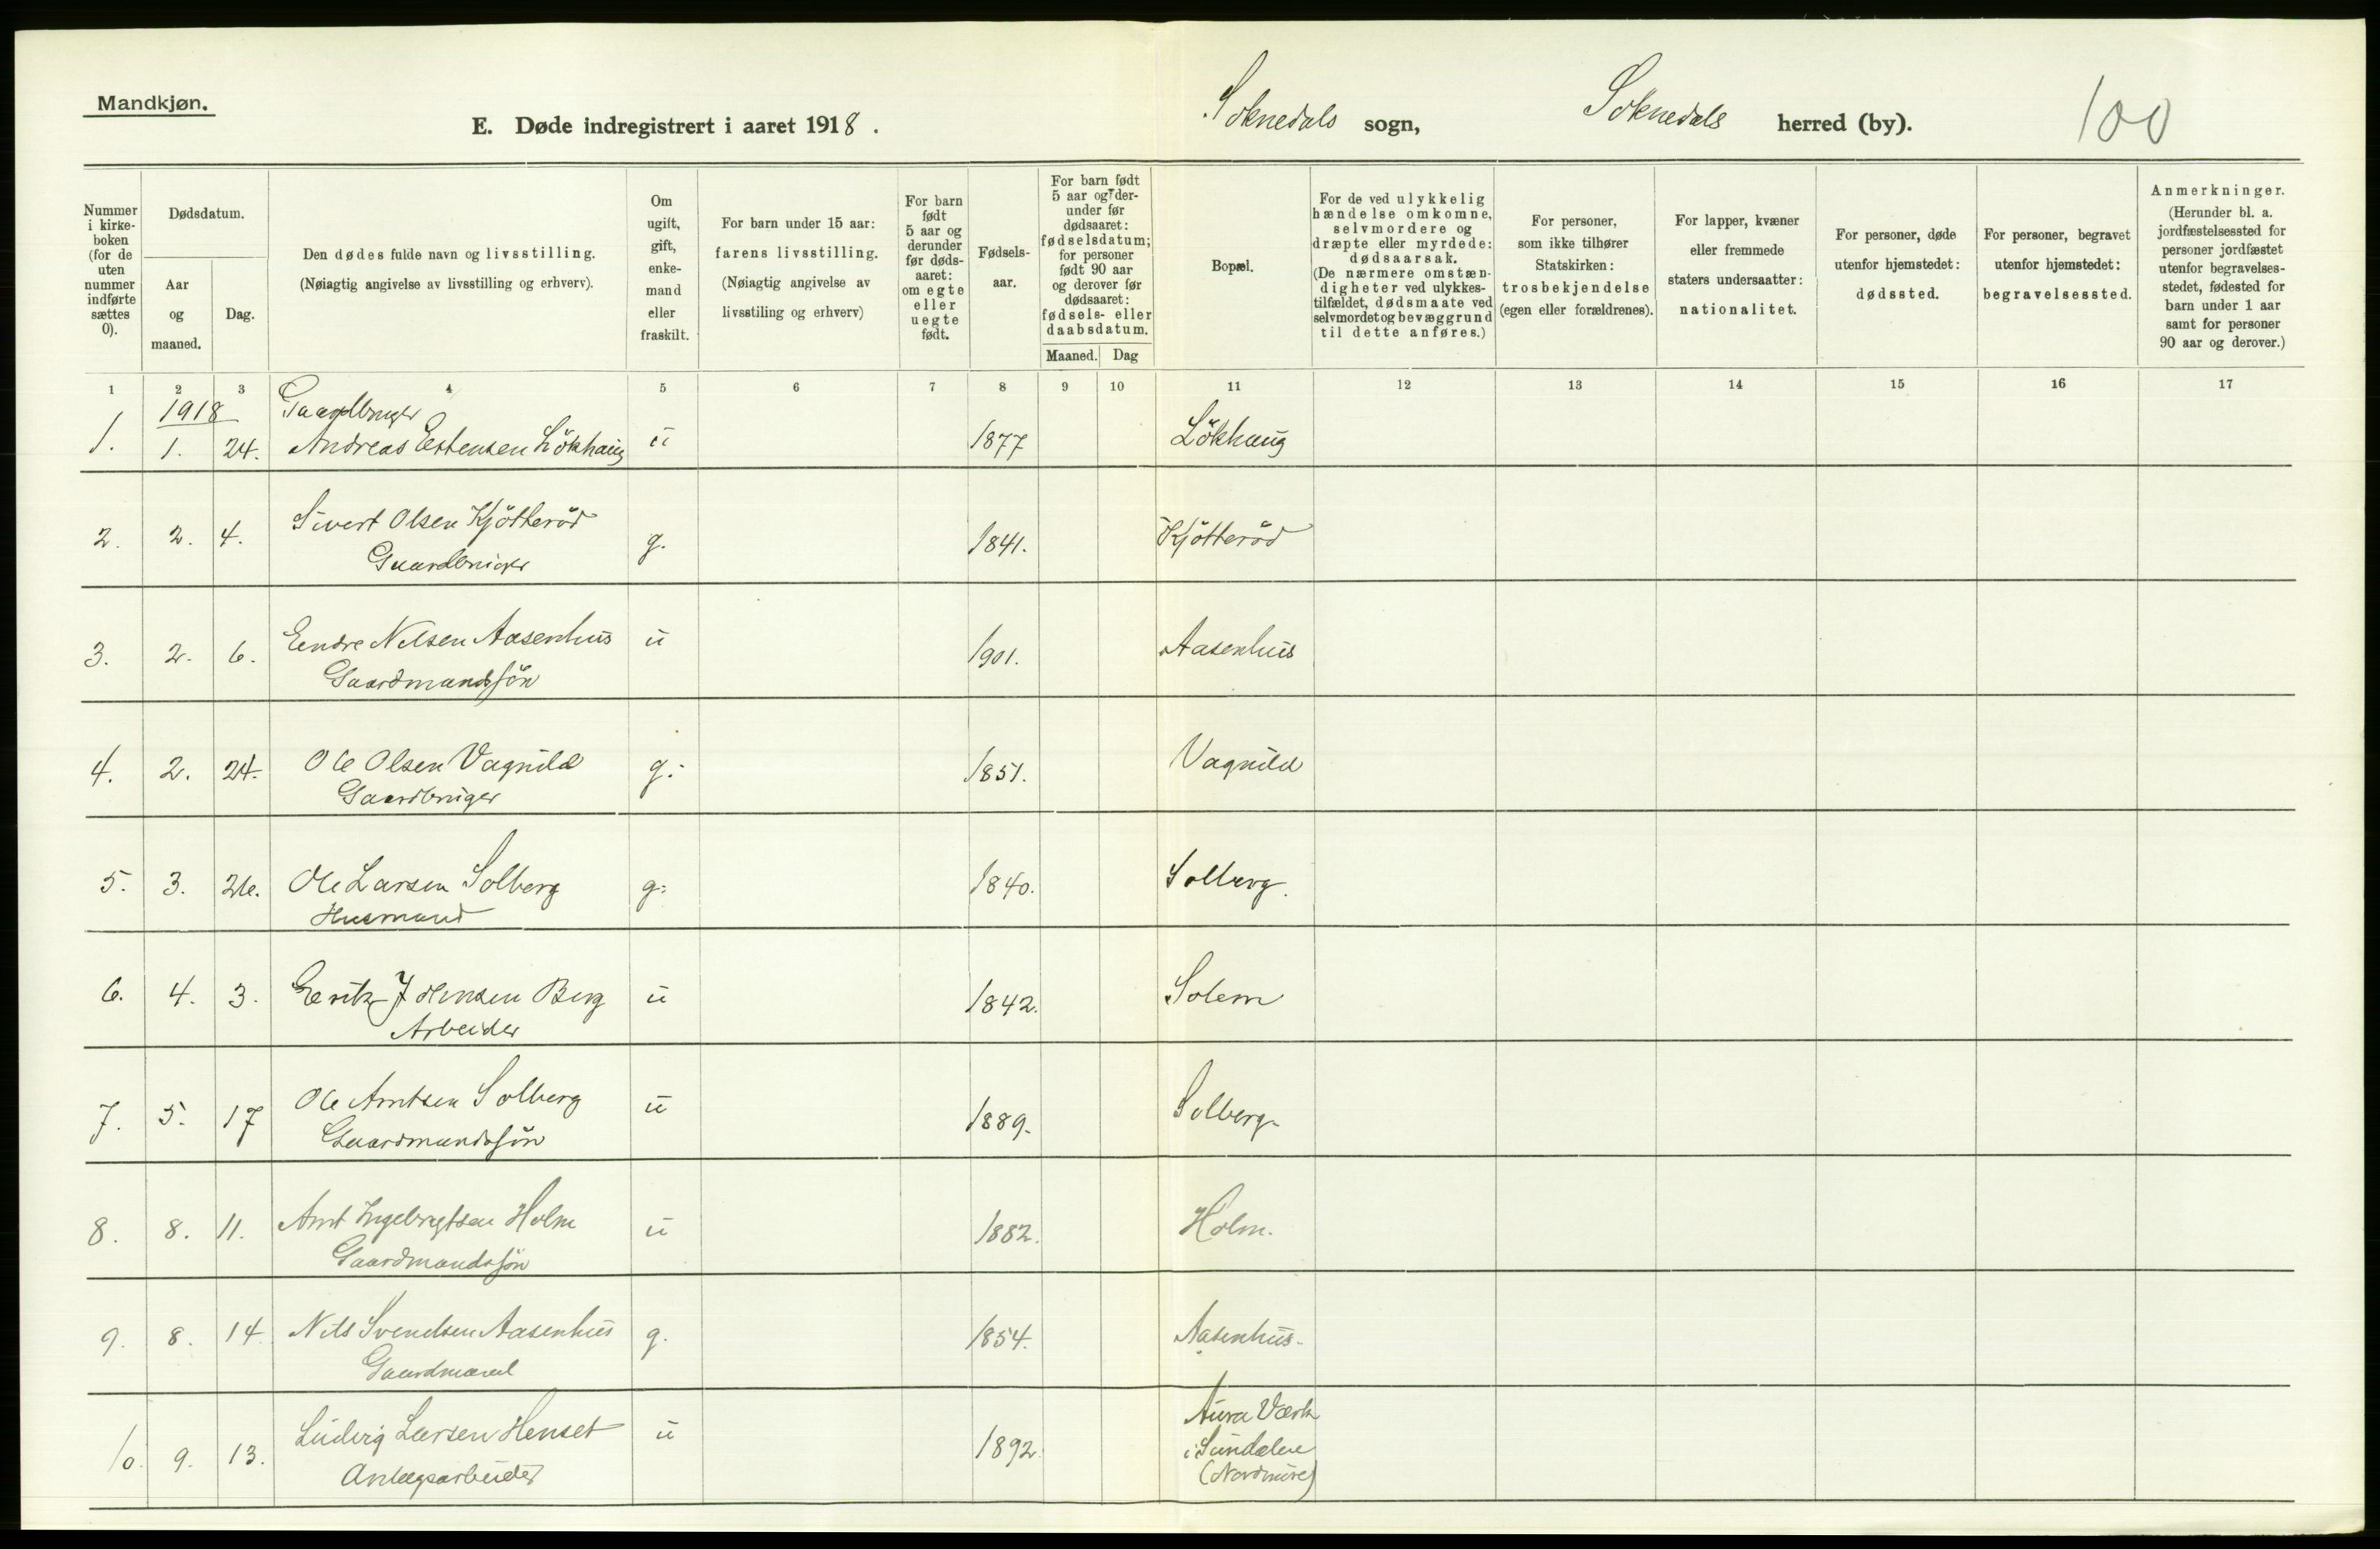 Mandkjøn.
E. Døde indregistrert i aaret 1918.
Soknedals sogn, Soknedals herred (by). 100
Nummer i kirke- boken (for de uten nummer indførte sættes 0).
Dødsdatum.
Aar og maaned.
Dag.
Den dødes fulde navn og livsstilling.
(Nøiagtig angivelse av livsstilling og erhverv).
Om ugift, gift, enke- mand eller fraskilt.
For barn under 15 aar: farens livsstilling. (Nøiagtig angivelse av livsstiling og erhverv)
For barn født 5 aar og derunder før døds- aaret: om egte eller uegte født.
Fødsels- aar.
For barn født 5 aar og der- under før dødsaaret: fødselsdatum; for personer født 90 aar og derover før dødsaaret: fødsels- eller daabsdatum.
Maaned. Dag
Bopæl.
For de ved ulykkelig hændelse omkomne, selvmordere og dræpte eller myrdede: dødsaarsak. (De nærmere omstæn- digheter ved ulykkes- tilfældet, dødsmaate ved selvmordet og bevæggrund til dette anføres.)
For personer, som ikke tilhører Statskirken: trosbekjendelse (egen eller forældrenes).
For lapper, kvæner eller fremmede staters undersaatter: nationalitet.
For personer, døde utenfor hjemstedet: dødssted.
For personer, begravet utenfor hjemstedet: begravelsessted.
Anmerkninger. (Herunder bl. a. jordfæstelsessted for personer jordfæstet utenfor begravelses- stedet, fødested for barn under 1 aar samt for personer 90 aar og derover.)
1 2 3 4 5 6 7 8 9 10 11 12 13 14 15 16 17
1918 Gaardbruger
1. 1. 24. Andreas Estensen Lökhaug u 1877 Lökhaug
2. 2. 4. Sivert Olsen Kjötteröd g. 1841. Kjötteröd
Gaardbruger
3. 2. 6. Eendre Nilsen Aasenhus u 1901. Aasenhus
Gaardmandssön
4. 2. 24. Ole Olsen Vagnild g. 1851. Vagnild
Gaardbruger
5. 3. 26. Ole Larsen Solberg g. 1840. Solberg.
Husmand
6. 4. 3. Berg u 1842. Solem
Arbeider
7. 5. 17 Ole Arntsen Solberg u 1889. Solberg.
Gaardmandssön
8. 8. 11. Arnt Ingebrigtsen Holm u 1882. Holm.
Gaardmandssön
9. 8. 14 Nils Svendsen Aasenhus g. 1854. Aasenhus.
Gaardmand
10. 9. 13. Ludvig Larsen Henset u 1892. Aura Værk
i Sundalen
Anlægsarbeider (Nordmöre)